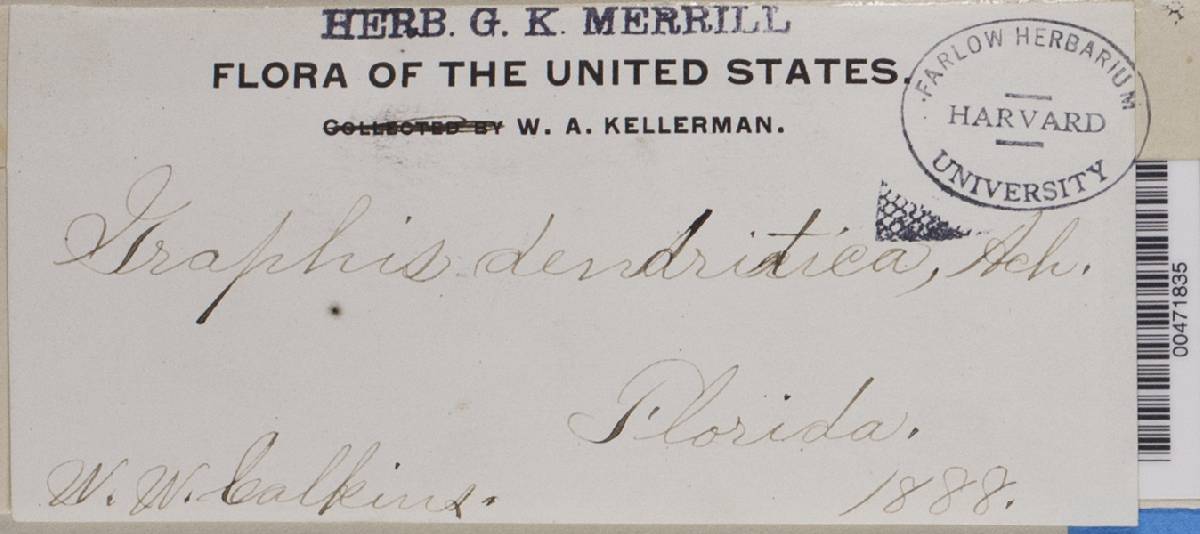 HERB. G. K. MERRILL
FLORA OF THE UNITED STATES.
COLLECTED BY W. A. KELLERMAN.
FARLOW HERBARIUM
HARVARD
UNIVERSITY
Graphis dendritica, Ach.
Florida.
W. W. Calkins.
1888.
00471835